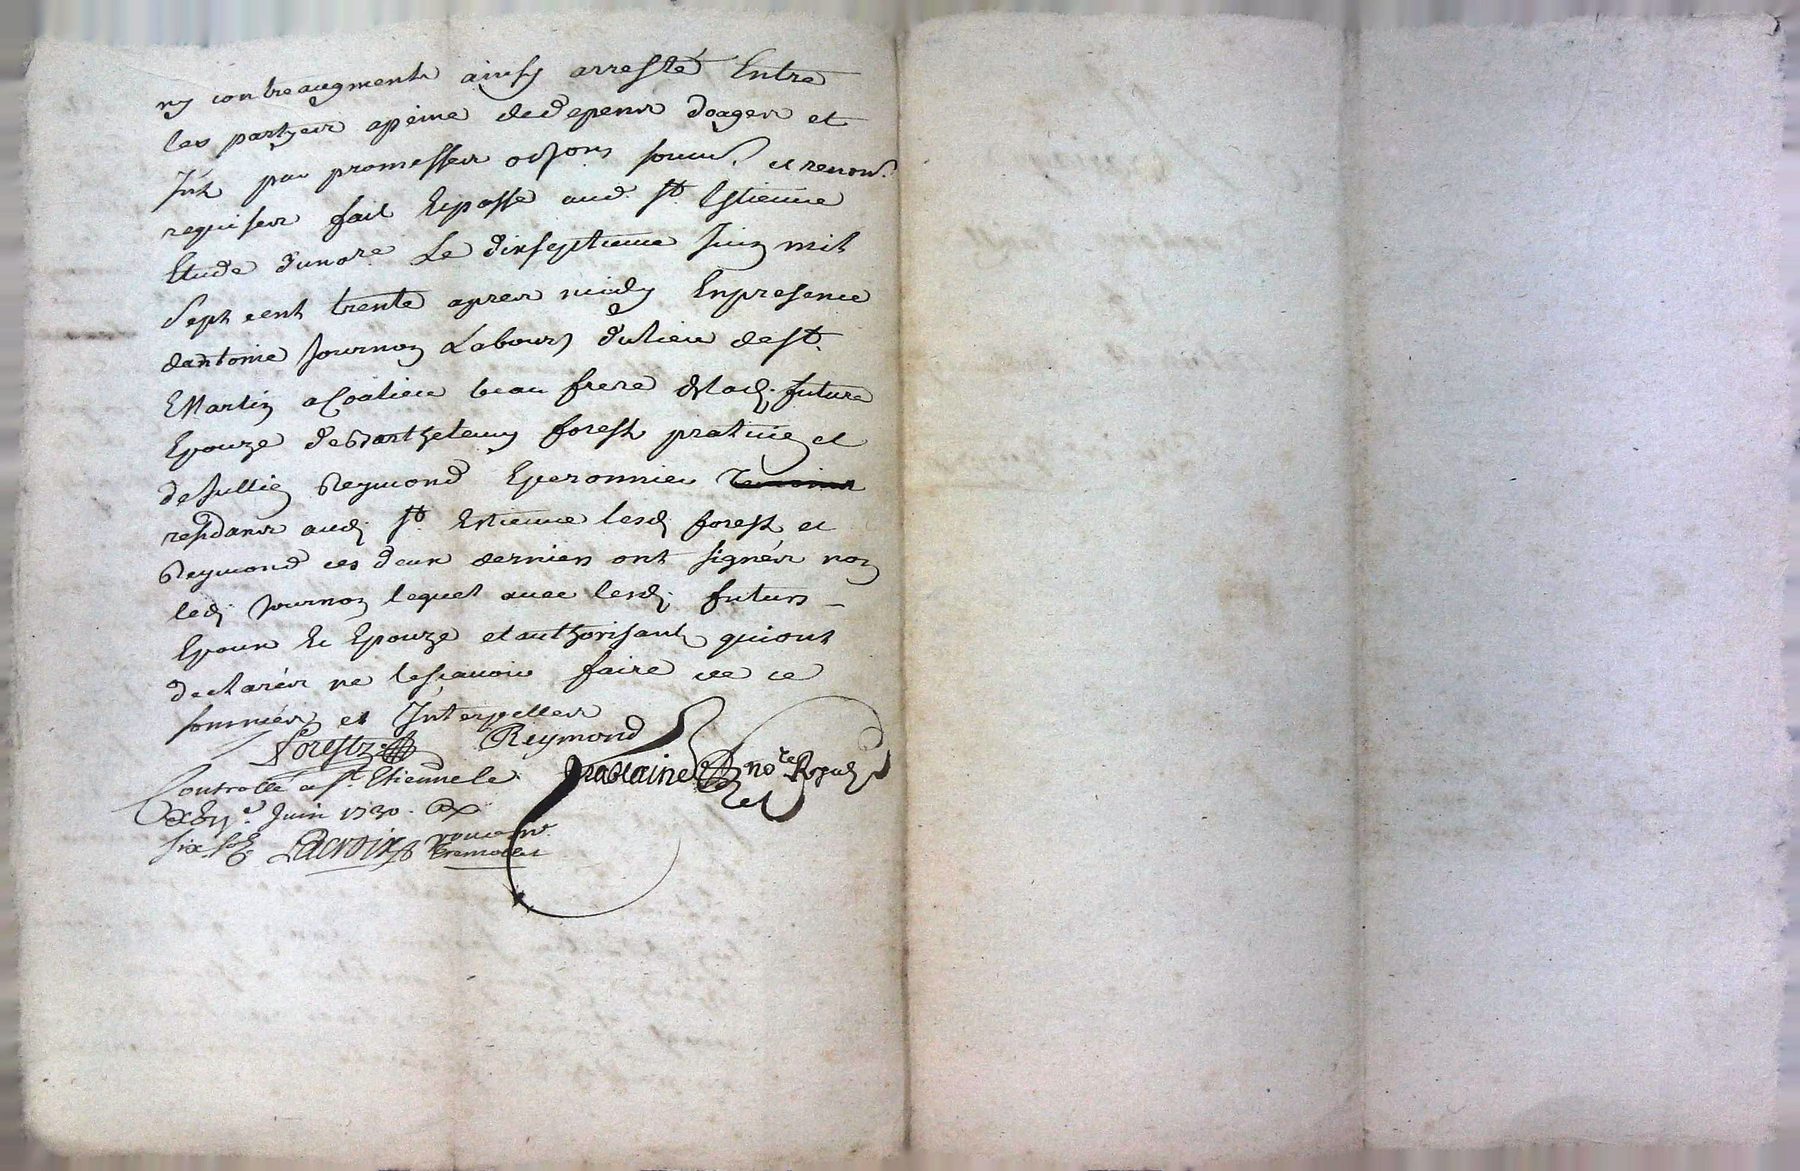 ny contreaugments ainsy arresté Entre
les partyes apeine dedepens doages et
Jnts par promesses oblons soum. et renon.
requises fait Et passé aud. St. Estienne
Etude dunore Le dixseptieme Juin mil
Sept cent trente apres midy Enpresence
dantoine Journon Labour dulieu de St.
Martin aCoalieu beau frere delad. future
Epouze deBarthelemy forest praticien et
de Jullien Reymond Eperonnier
residans aud. St. Estienne lesd. forest et
Reymond ces deux derniers ont signés non
led. Journon lequel avec lesd. futurs
Epoux Et Epouze et authorisant quiont
declarés ne lescavoir faire de ce
sommés et Interpelles
Forest Reymond
no.re Royal
Controllé a St. Etienne le
Juin 1730.
six s. Lacroix